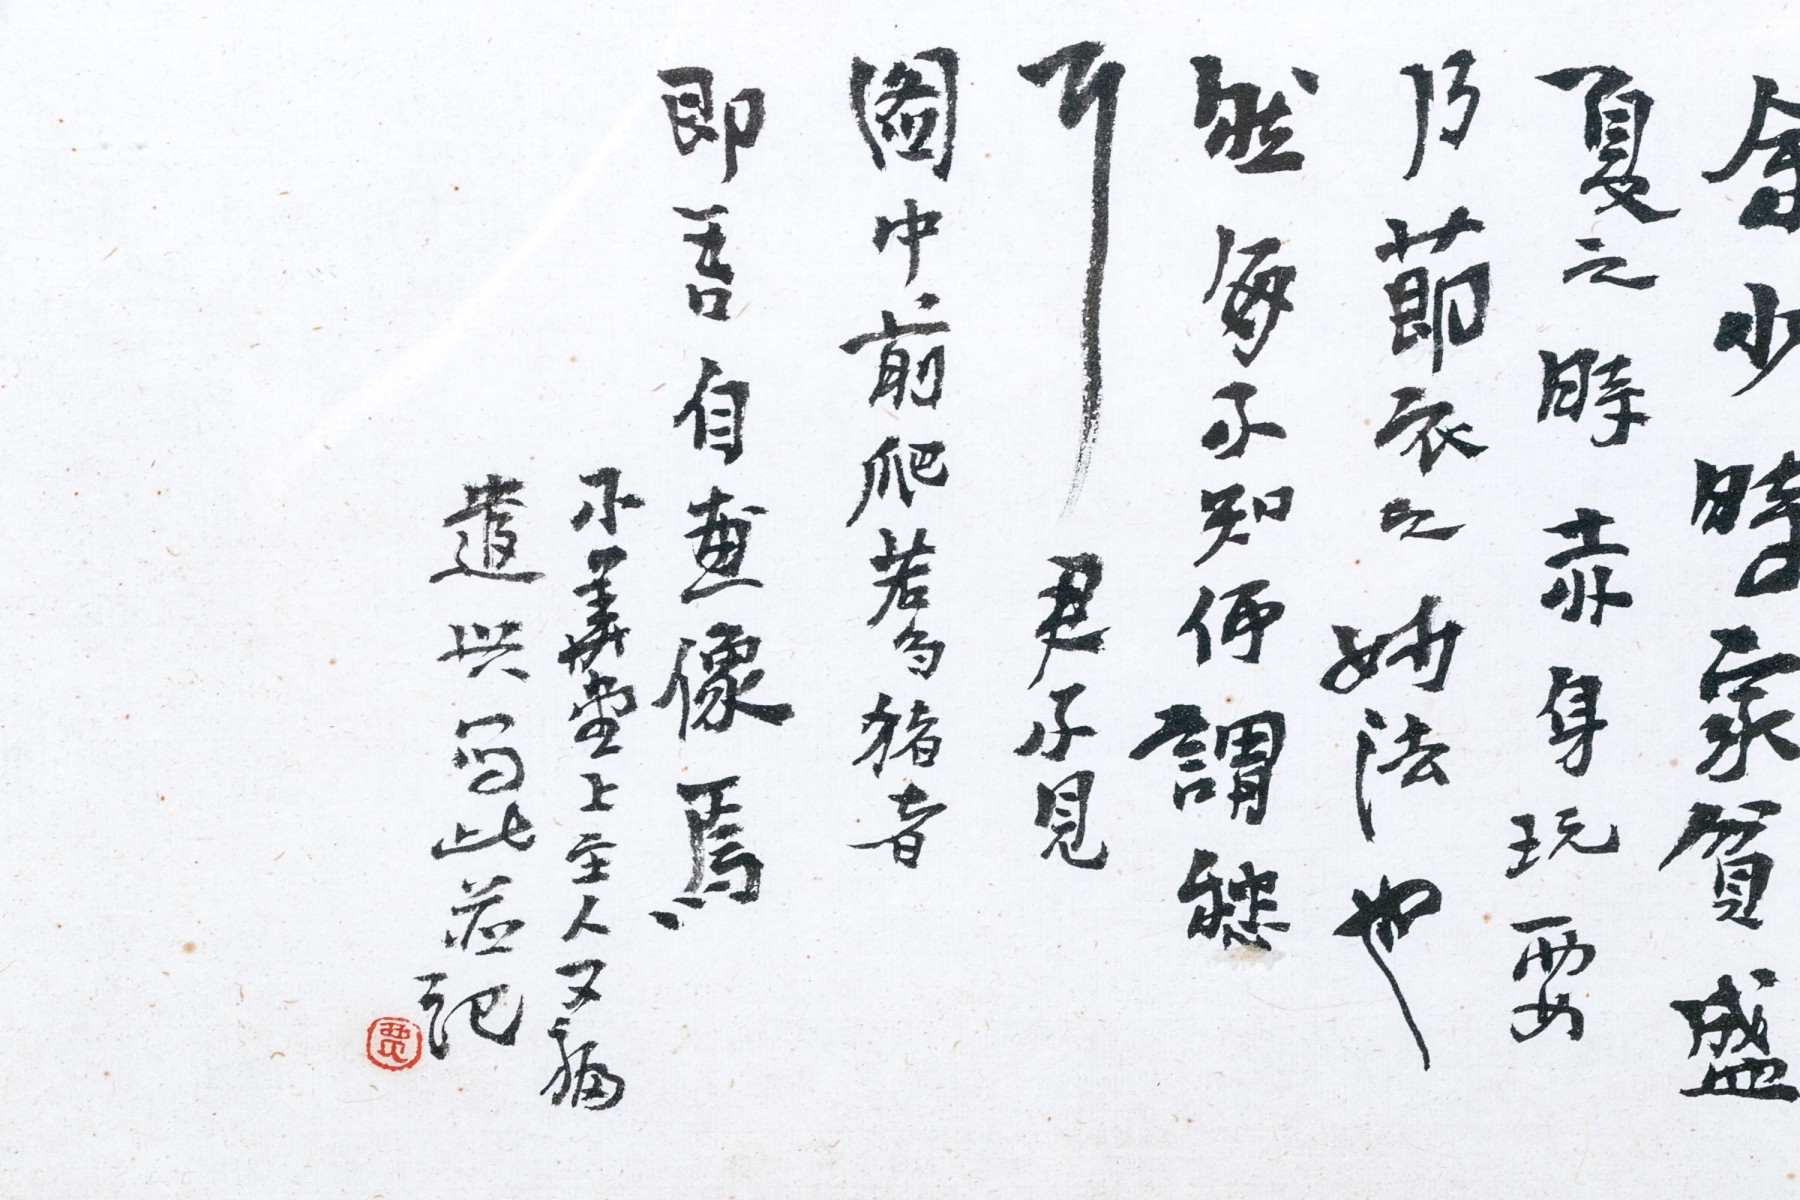 余少時家貧盛
夏之時赤身玩耍
乃節衣之妙法也
然每不知何謂愁
耳君不見
圖中前爬若烏豬者
即吾自畫像焉
不美堂上主人又福
遣興寫此並記